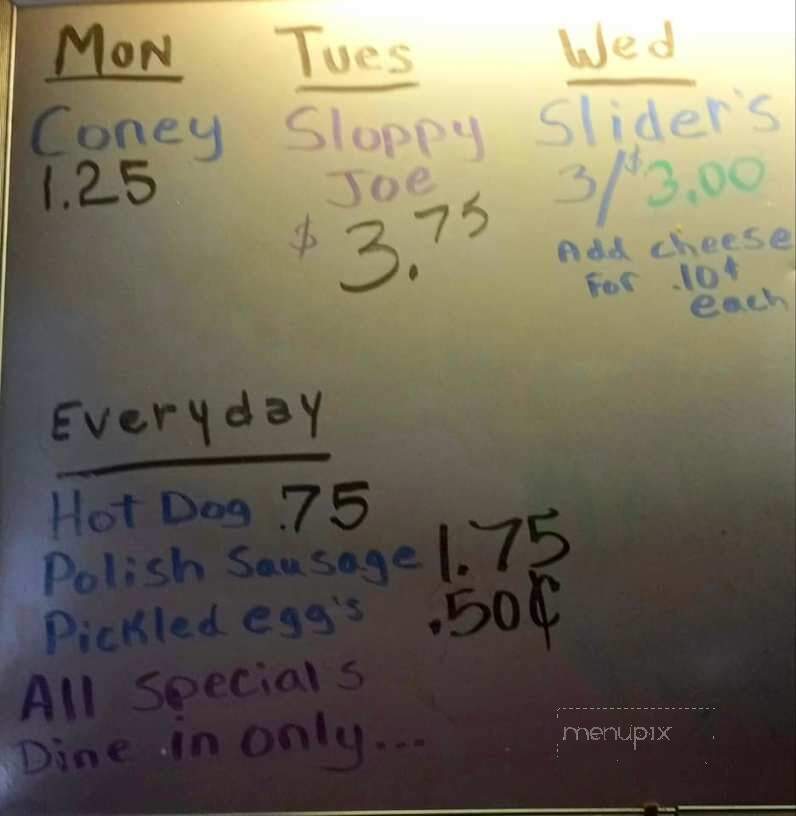 Mon
Coney
1.25
Tues
Sloppy
Joe
$ 3.75
Wed
Slider's
3/$3.00
Add cheese
For .10¢
each
Everyday
Hot Dog .75
Polish Sausage 1.75
Pickled egg's .50¢
All Specials
Dine in only...
menupix